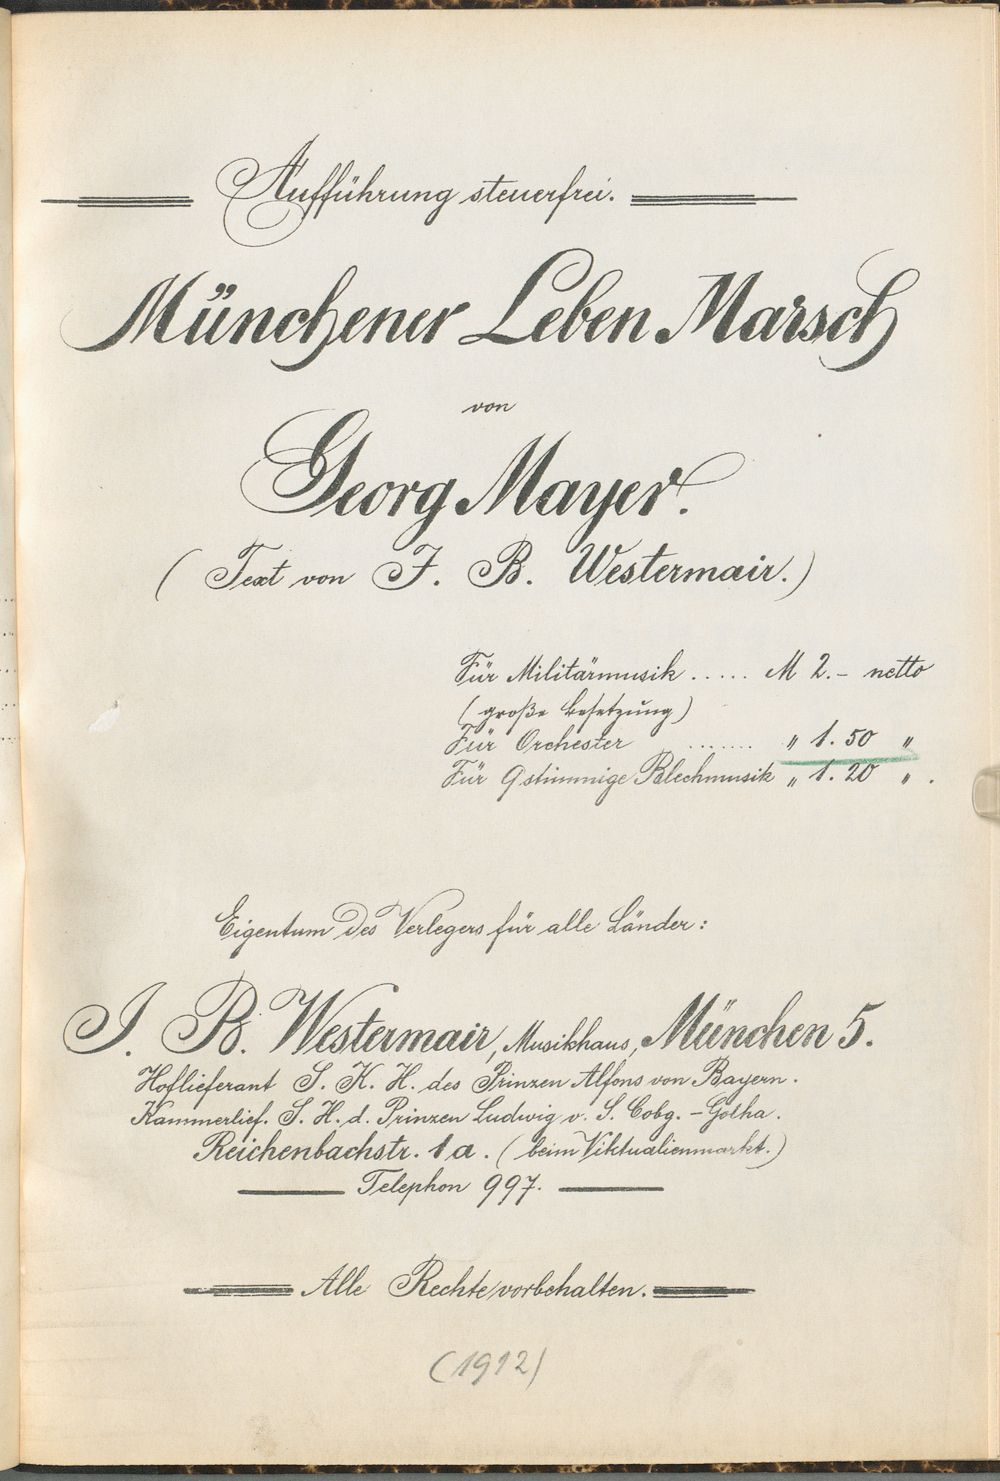 Aufführung steuerfrei.
Münchener Leben Marsch
von
Georg Mayer.
(Text von J. B. Westermair.)
Für Militärmusik ..... M 2.- netto
(große Besetzung)
Für Orchester ....... " 1.50 "
Für 9stimmige Blechmusik " 1.20 ".
Eigentum des Verlegers für alle Länder:
J. B. Westermair, Musikhaus, München 5.
Hoflieferant S. K. H. des Prinzen Alfons von Bayern.
Kammerlief. S. H. d. Prinzen Ludwig v. S. Cobg.-Gotha.
Reichenbachstr. 1a. (beim Viktualienmarkt.)
Telephon 997.
Alle Rechte vorbehalten.
(1912)